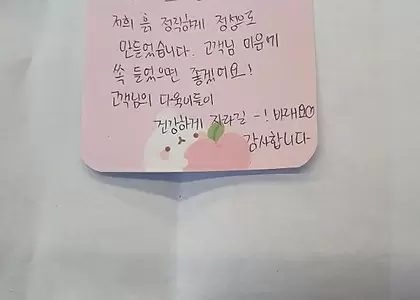 저희 흙 정직하게 정성으로
만들었습니다. 고객님 마음에
쏙 들었으면 좋겠어요!
고객님의 다육이들이
건강하게 자라길 ~! 바래요♡
감사합니다